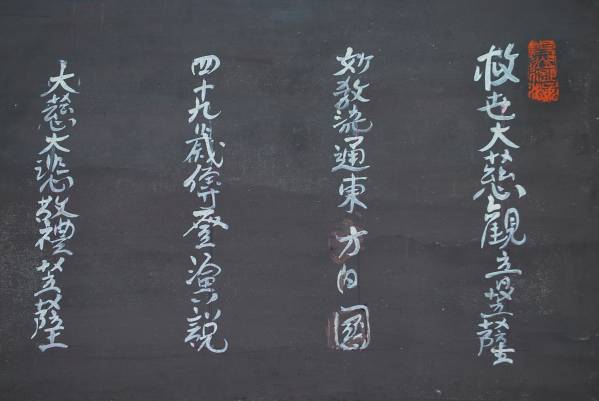 救世大慈觀音菩薩
妙教流通東方日國
四十九歳傳燈演説
大慈大悲敬禮菩薩